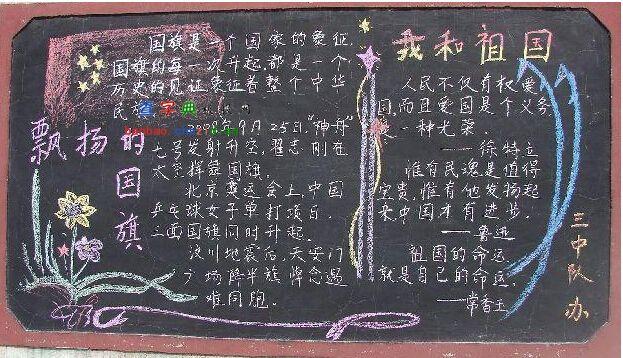 飘扬的国旗
国旗是一个国家的象征
国旗的每一次升起都是一个
历史的见证象征着整个中华
民族
2008年9月25日"神舟"
七号发射升空,翟志刚在
太空挥舞国旗。
北京奥运会上,中国
乒乓球女子单打项目,
三面国旗同时升起。
汶川地震后,天安门
广场降半旗悼念遇
难同胞。
我和祖国
人民不仅有权爱
国,而且爱国是个义务,
是一种光荣。
——徐特立
惟有民魂是值得
宝贵,惟有他发扬起
来中国才有进步。
——鲁迅
祖国的命运
就是自己的命运。
——常香玉
三中队办